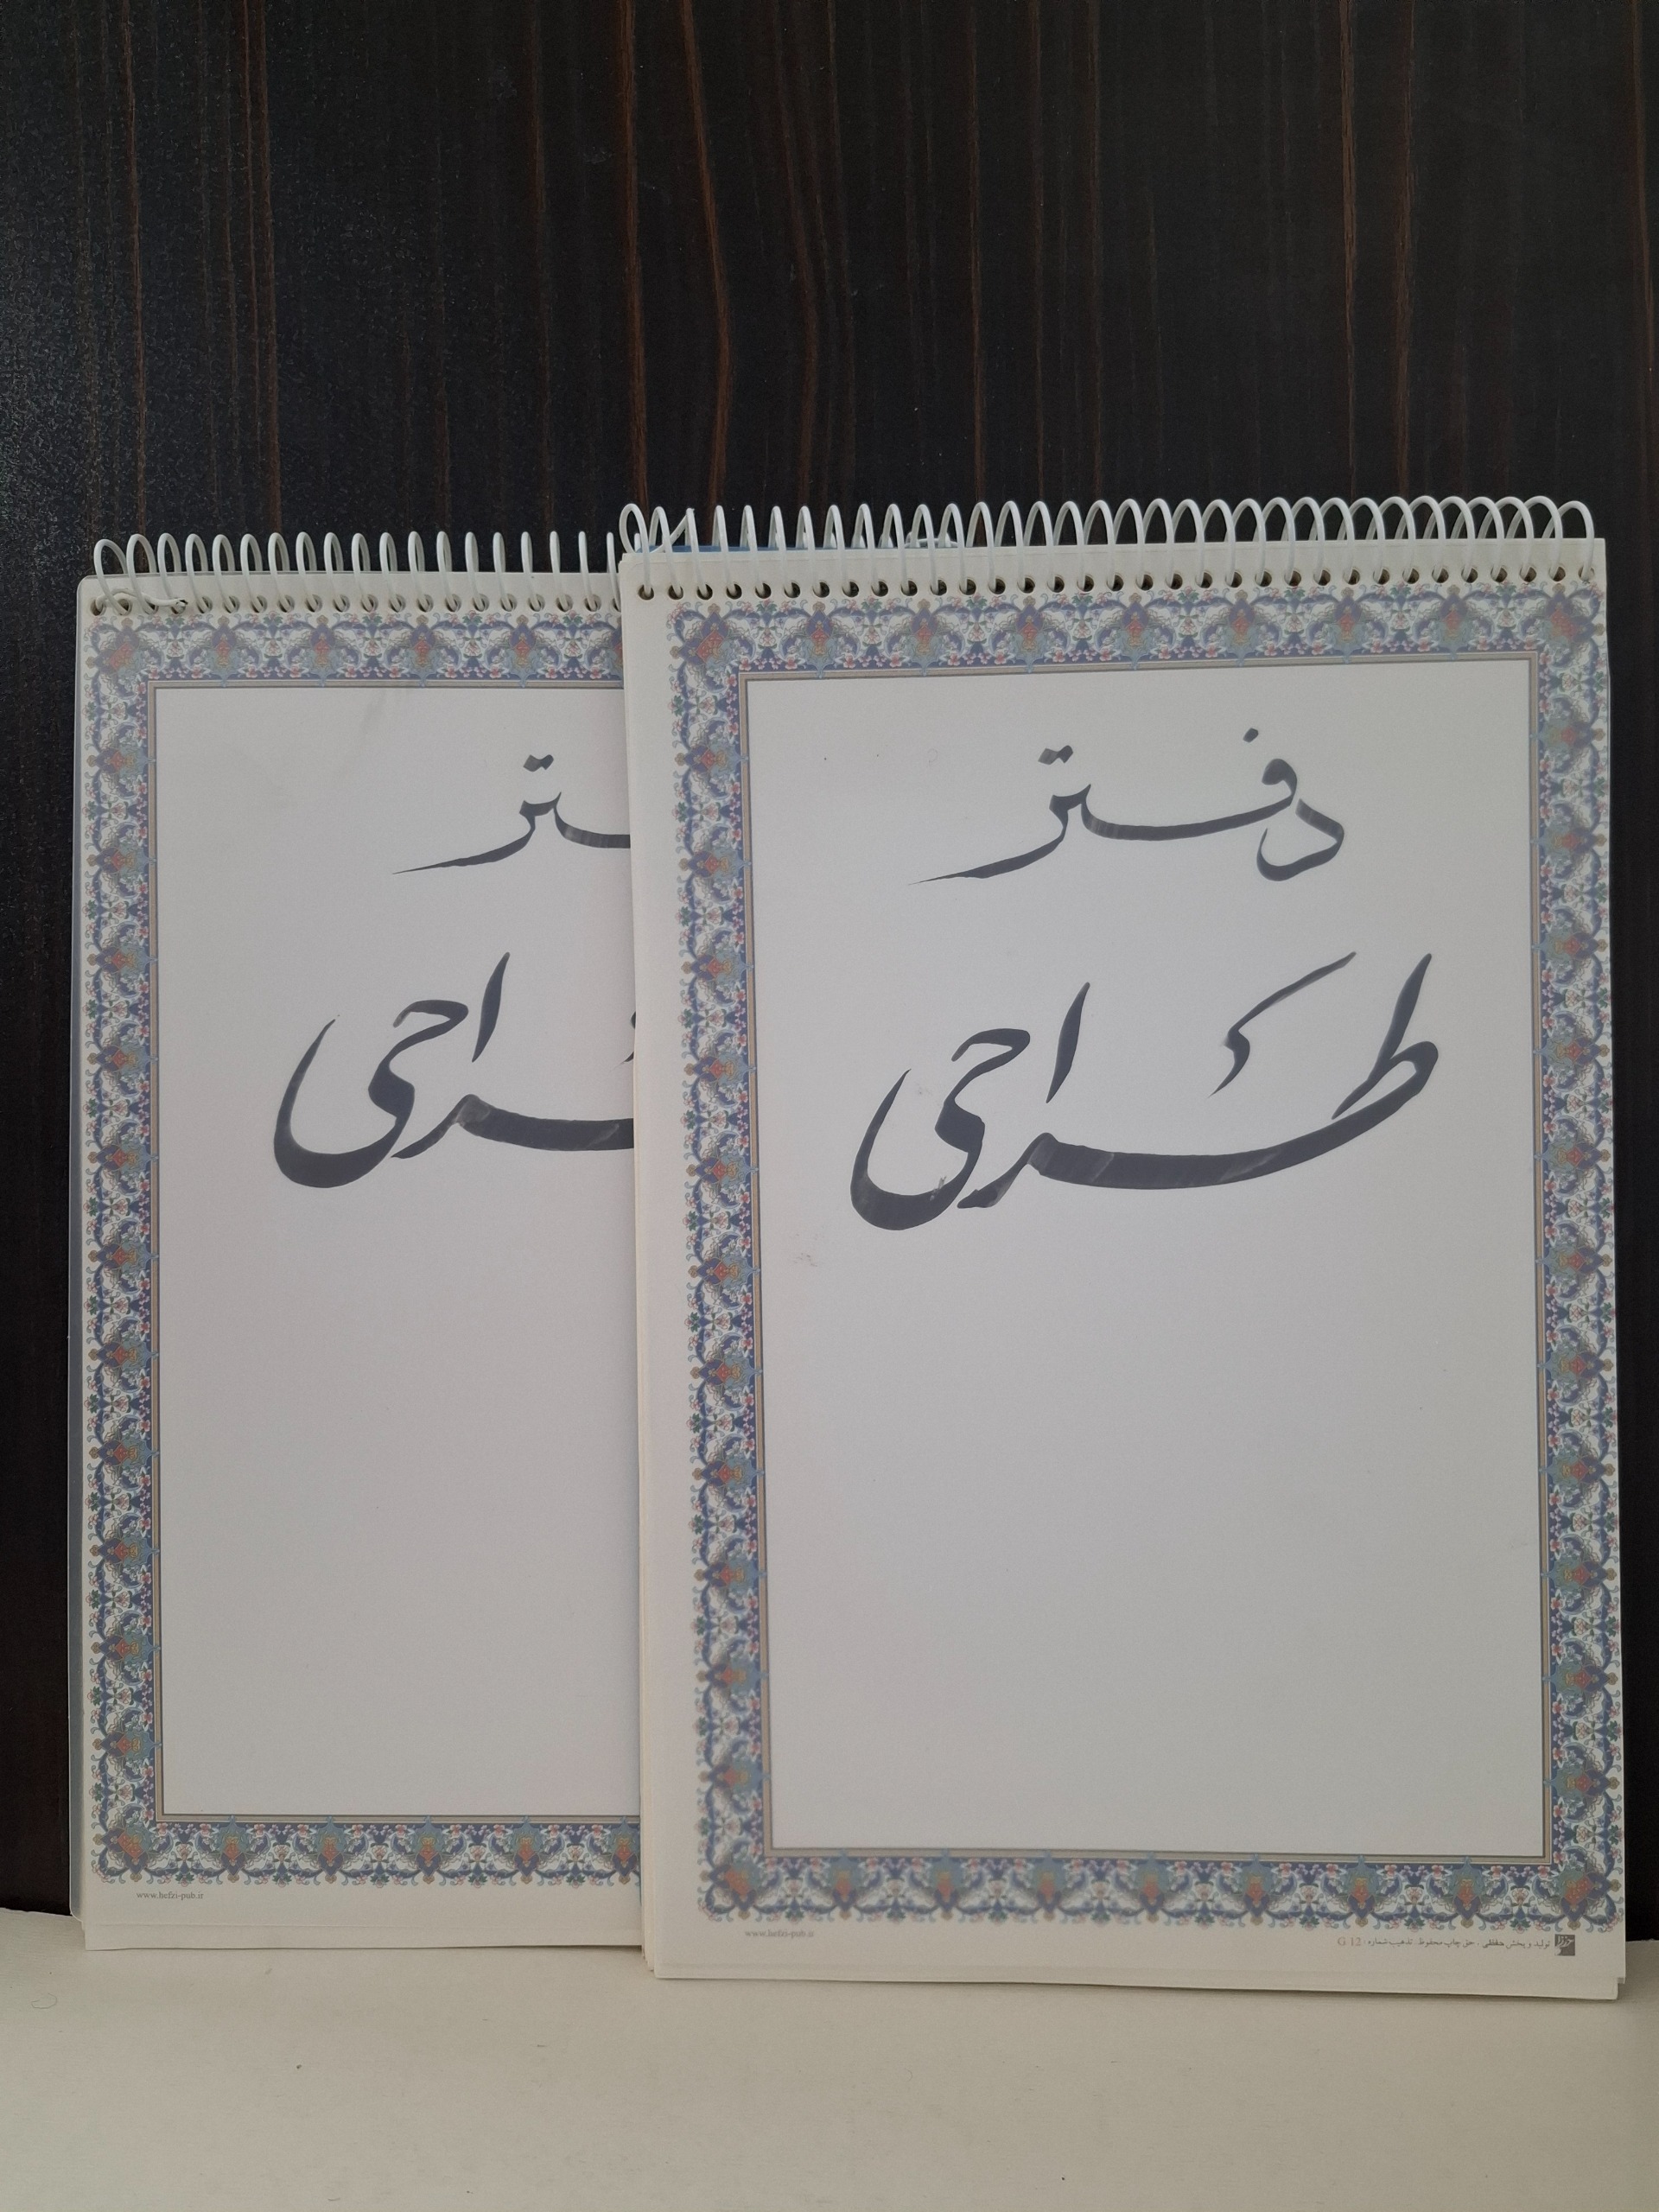 دفتر
طراحی
تولید و پخش حفظی . حق چاپ محفوظ . تذهیب شماره . G 12
www.hefzi-pub.ir
تر
احی
www.hefzi-pub.ir